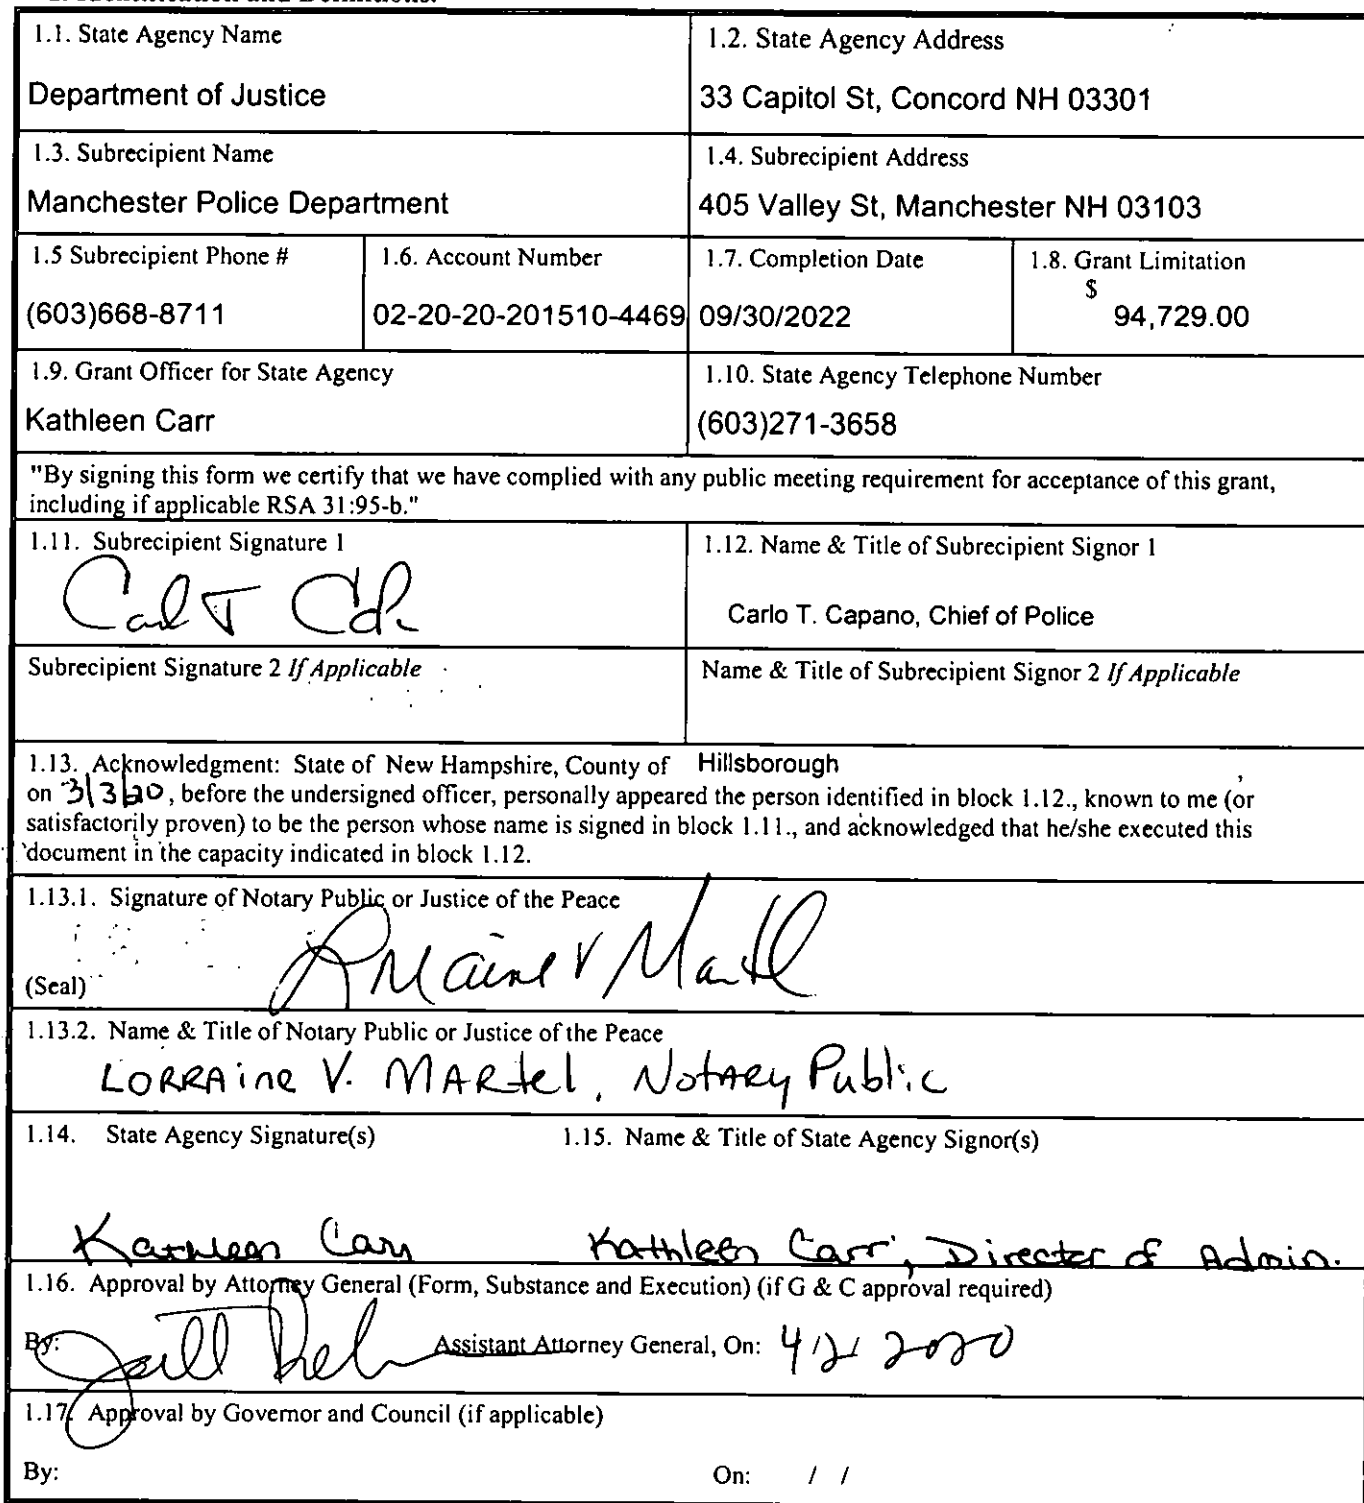 1.1. State Agency Name
Department of Justice
1.2. State Agency Address
33 Capitol St, Concord NH 03301
1.3. Subrecipient Name
Manchester Police Department
1.4. Subrecipient Address
405 Valley St, Manchester NH 03103
1.5 Subrecipient Phone #
(603)668-8711
1.6. Account Number
02-20-20-201510-4469
1.7. Completion Date
09/30/2022
1.8. Grant Limitation
$
94,729.00
1.9. Grant Officer for State Agency
Kathleen Carr
1.10. State Agency Telephone Number
(603)271-3658
"By signing this form we certify that we have complied with any public meeting requirement for acceptance of this grant,
including if applicable RSA 31:95-b."
1.11. Subrecipient Signature 1
1.12. Name & Title of Subrecipient Signor 1
Carlo T. Capano, Chief of Police
Subrecipient Signature 2 If Applicable
Name & Title of Subrecipient Signor 2 If Applicable
1.13. Acknowledgment: State of New Hampshire, County of Hillsborough ,
on 3/3/20, before the undersigned officer, personally appeared the person identified in block 1.12., known to me (or
satisfactorily proven) to be the person whose name is signed in block 1.11., and acknowledged that he/she executed this
document in the capacity indicated in block 1.12.
1.13.1. Signature of Notary Public or Justice of the Peace
(Seal)
1.13.2. Name & Title of Notary Public or Justice of the Peace
LORRAine V. MARtel, NotARy Public
1.14. State Agency Signature(s)
1.15. Name & Title of State Agency Signor(s)
Kathleen Carr
Kathleen Carr, Director of Admin.
1.16. Approval by Attorney General (Form, Substance and Execution) (if G & C approval required)
By: Assistant Attorney General, On: 4/2/2020
1.17. Approval by Governor and Council (if applicable)
By: On: / /